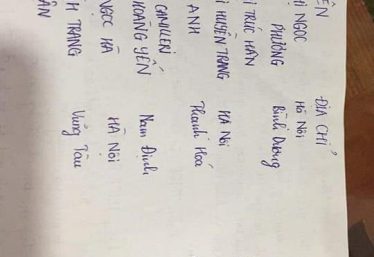 ÊN ĐỊA CHỈ
HỊ NGỌC HÀ NỘI
PHƯƠNG Bình Dương
Ị TRÚC HÂN
Ị HUYỀN TRANG HÀ NỘI
ANH Thanh Hoá
HOÀNG YẾN Nam Định
NGỌC HÀ HÀ NỘI
H TRANG Vũng Tàu
ÂN